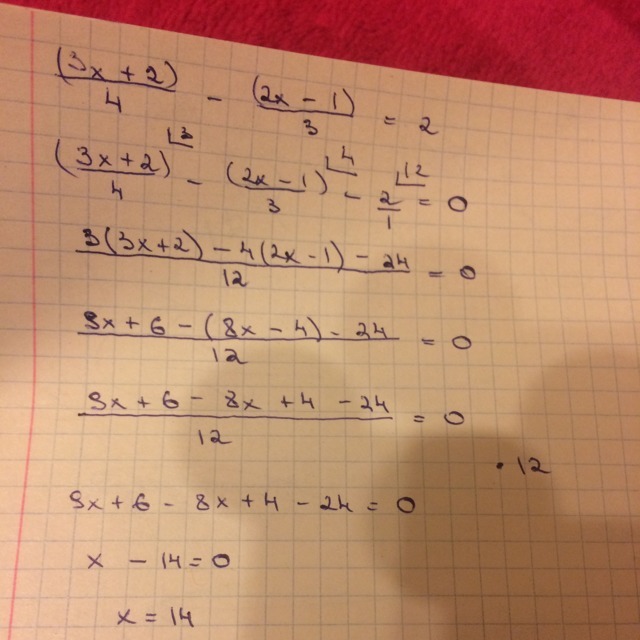 (3x + 2)/4 - (2x - 1)/3 = 2
(3x + 2)/4 ⌊3 - (2x - 1)/3 ⌊4 - 2/1 ⌊12 = 0
3(3x + 2) - 4(2x - 1) - 24/12 = 0
9x + 6 - (8x - 4) - 24/12 = 0
9x + 6 - 8x + 4 - 24/12 = 0
· 12
9x + 6 - 8x + 4 - 24 = 0
x - 14 = 0
x = 14